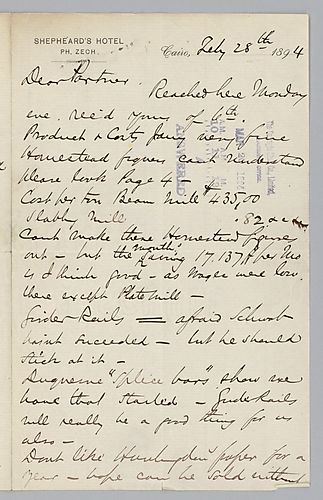 SHEPHEARD'S HOTEL
PH. ZECH.
Cairo, Feby 28th 1894
Dear Partner.
Reached here Monday
eve. rec'd yours of 6th.
Product & Cost Jany very fine
Homestead figures can't understand
please look Page 4
Cost per ton Beam Mill $435.00
Slabbg Mill .82
Can't make these Homestead figures
out — but the month's 17.137 $ per
is I think good — as wages were low.
there except Plate Mill —
Girder Rails — afraid Schwab
hasn't succeeded — but he should
stick at it —
Duquesne "Splice bars" show we
have that started — Girder Rails
will really be a good thing for us
also —
Don't like Huntingdon paper for a
year — hope can be sold without
ANSWERED